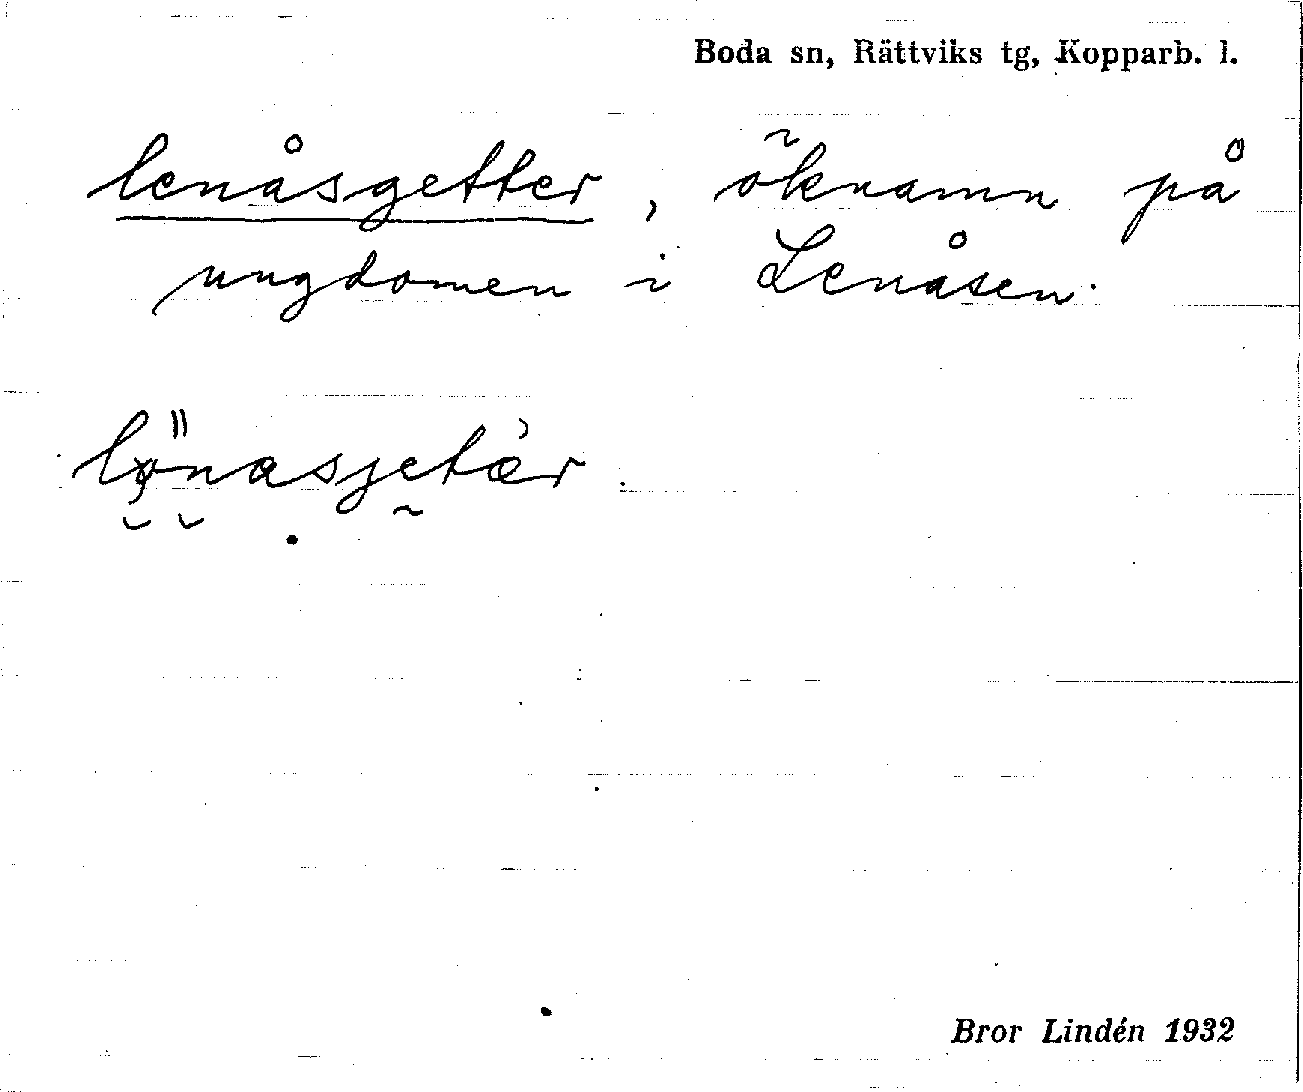 Boda sn, Rättviks tg, Kopparb. l.
lenåsgetter, öknamn på
ungdomen i Lenåsen.
Bror Lindén 1932